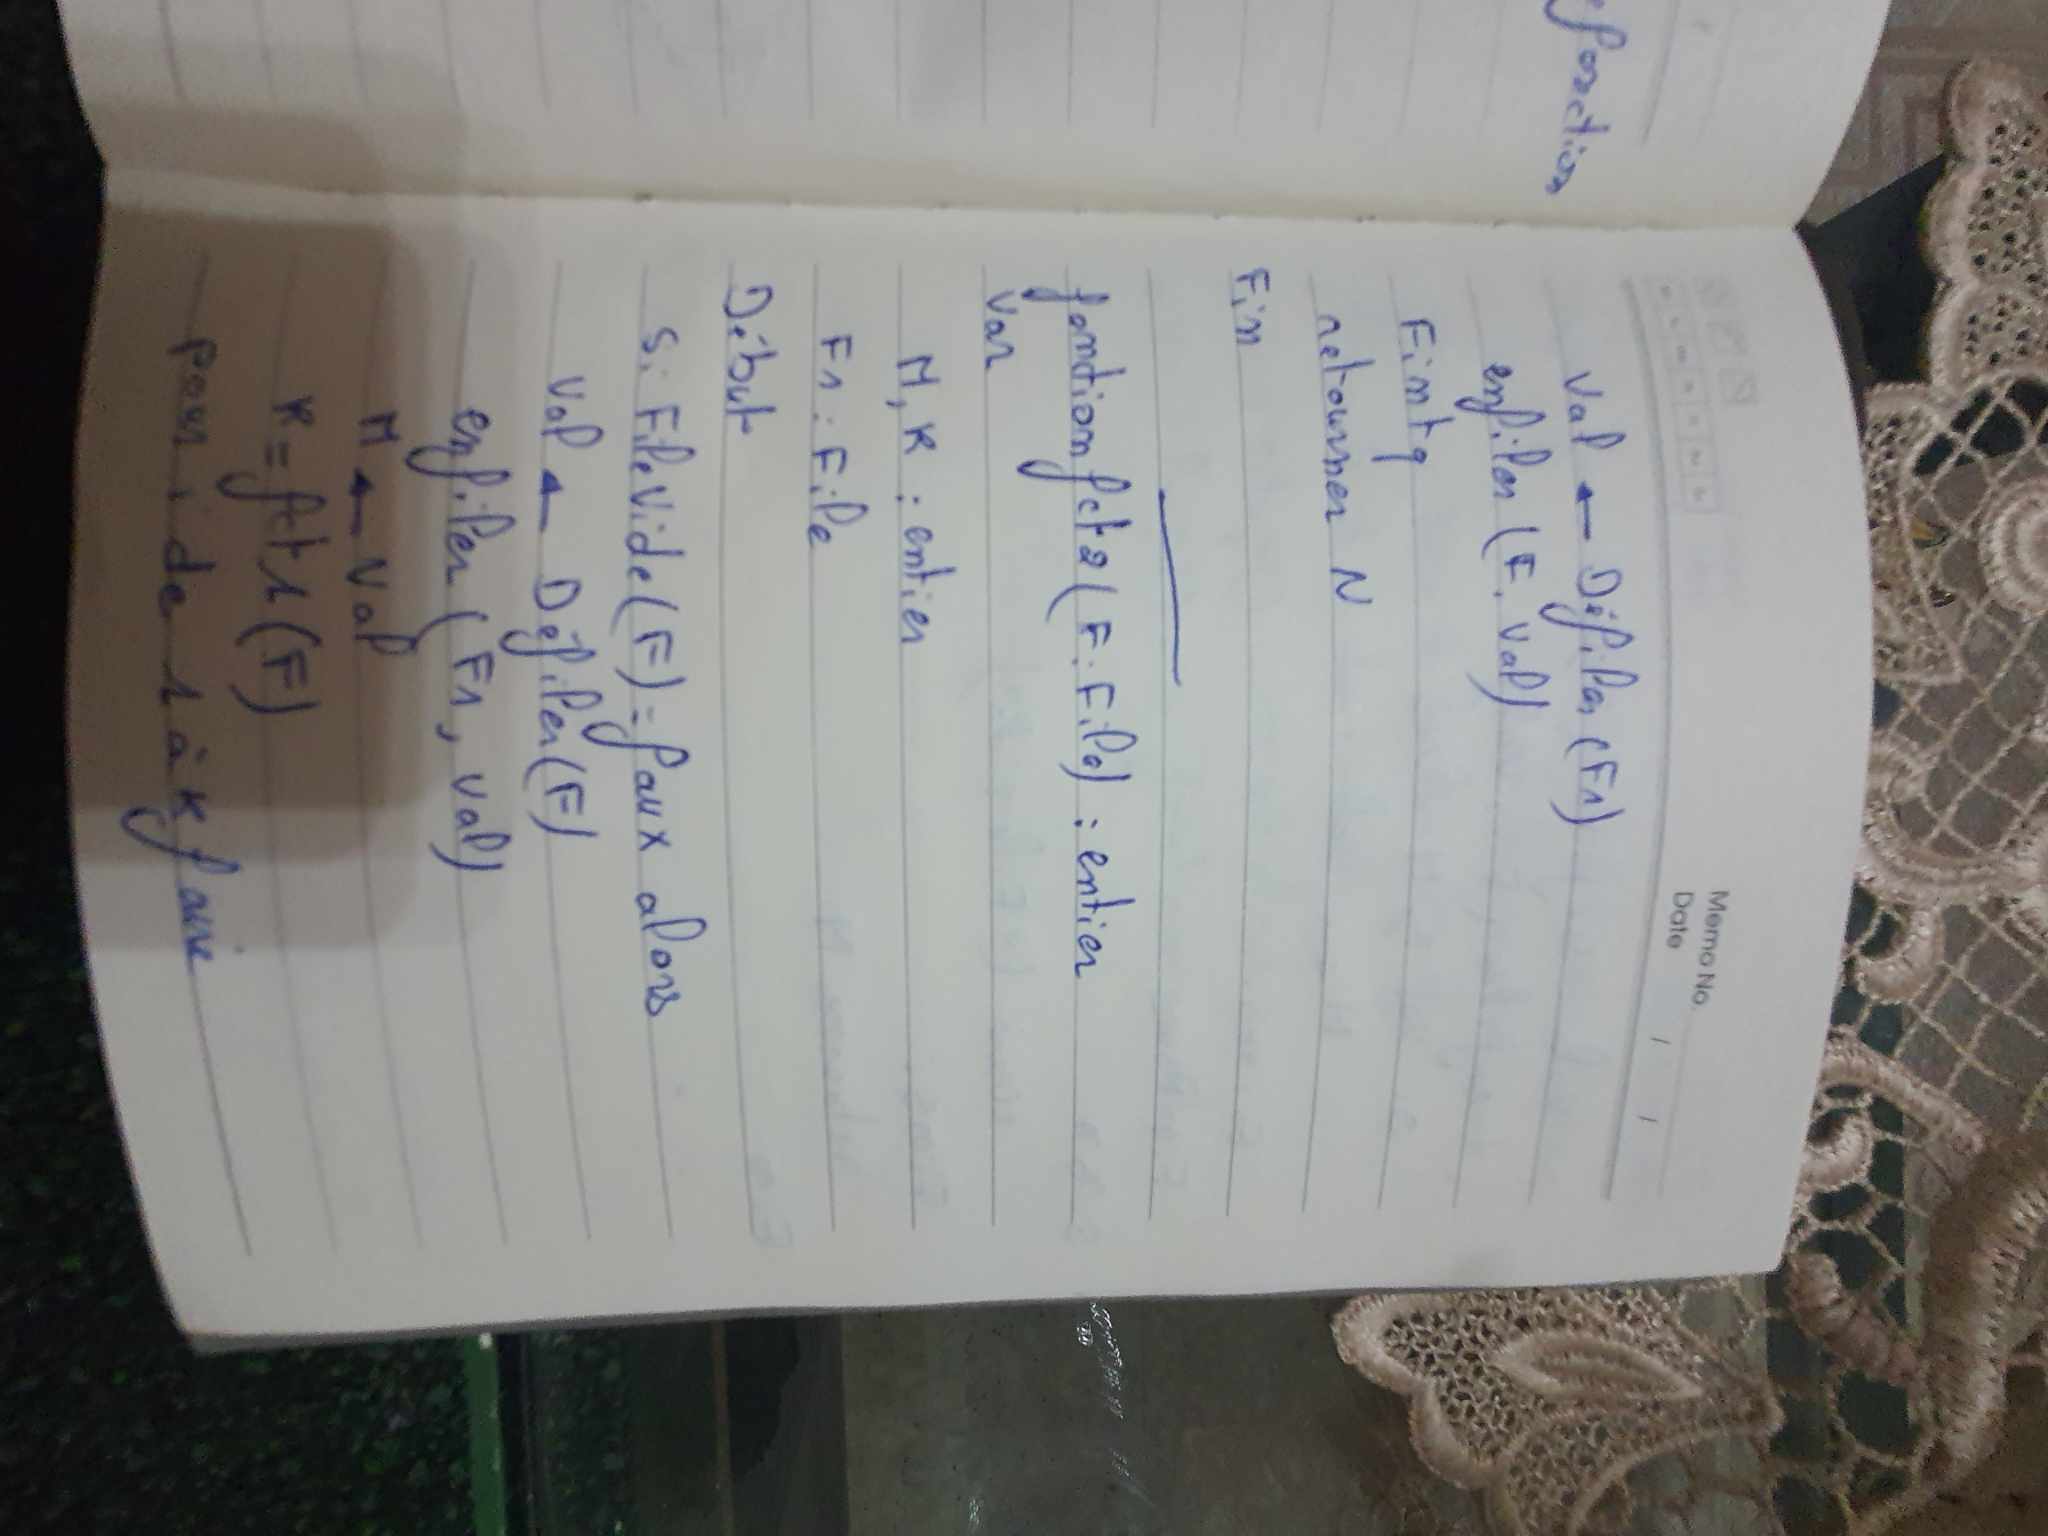 fonction
Memo No.
Date / /
Val ← Défiler (F1)
enfiler (F, Val)
Fintq
retourner N
Fin
fonction fct2 (F: File) : entier
Var
M, K : entier
F1 : File
Début
Si FileVide (F) = faux alors
Val ← Défiler (F)
enfiler (F1, Val)
M ← Val
K = fct1 (F)
pour i de 1 à K faire